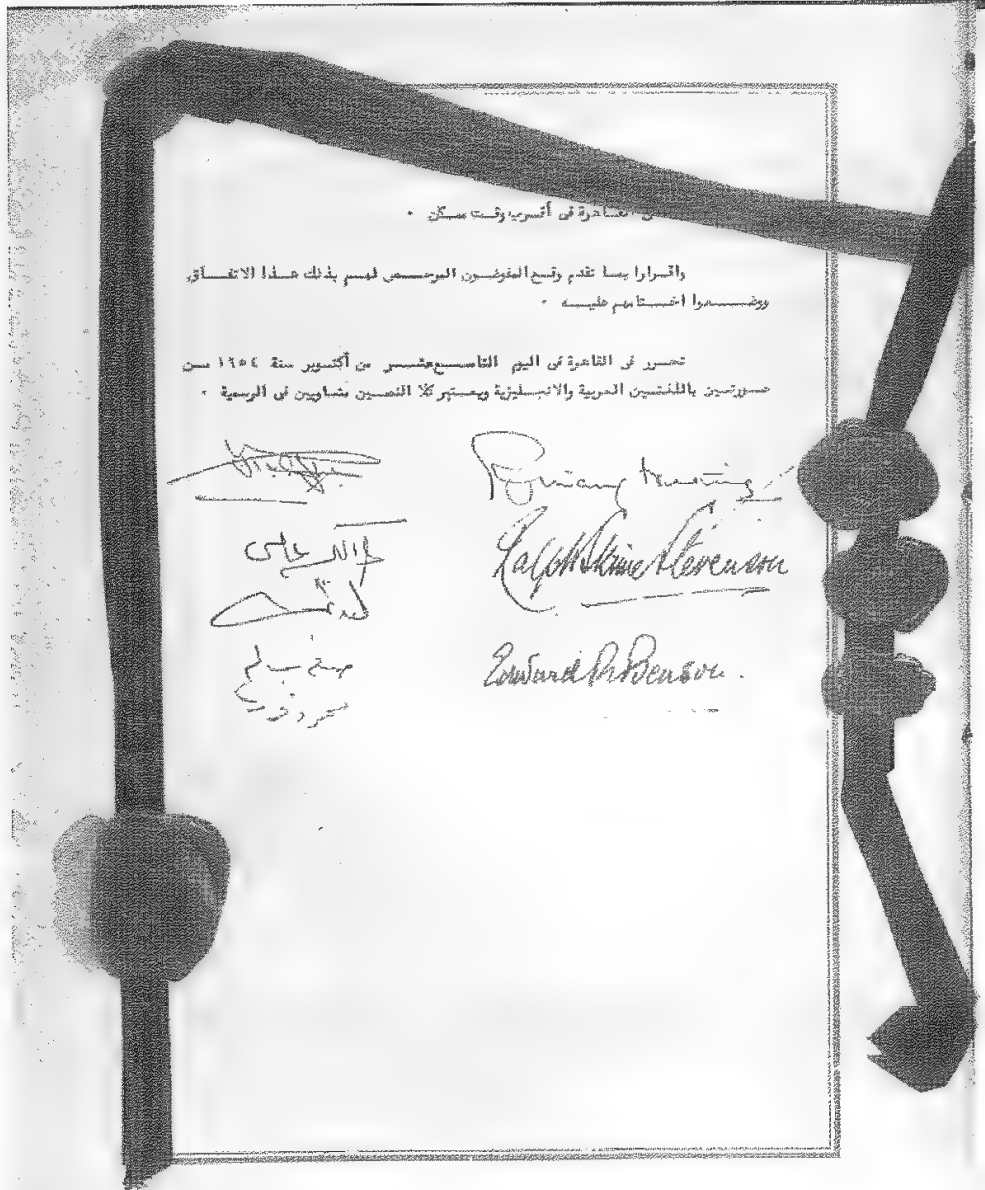 القاهرة فى أقرب وقت ممكن ٠
واقـرارا بمـا تقدم وقـع المفوضـون المرخـص لهـم بذلك هـذا الاتفـاق
ووضـعوا اختـامهم عليـه ٠
تحـرر فى القاهرة فى اليوم التاسـع عشـر من أكتـوبر سنة ١٩٥٤ مـن
صـورتـين باللغتـين العربية والانجـليزية ويعـتبر كلا النصـين متساويين فى الرسمية ٠
Ralph Skrine Stevenson
Edward R. Benson.